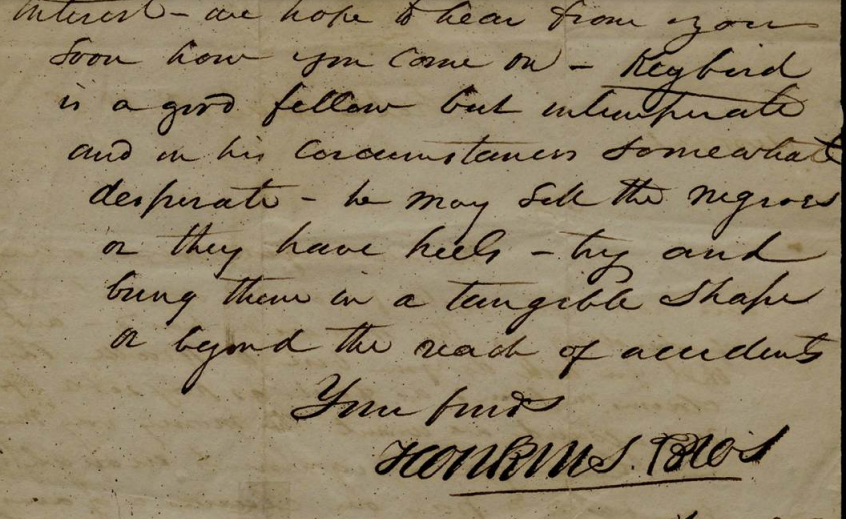 interest - we hope to hear from you
soon how you come on - Keybird
is a good fellow but intemperate
and in his circumstances somewhat
desperate - he may sell the negroes
or they have heels - try and
bring them in a tangible shape
or beyond the reach of accidents
Your frnds
Bros